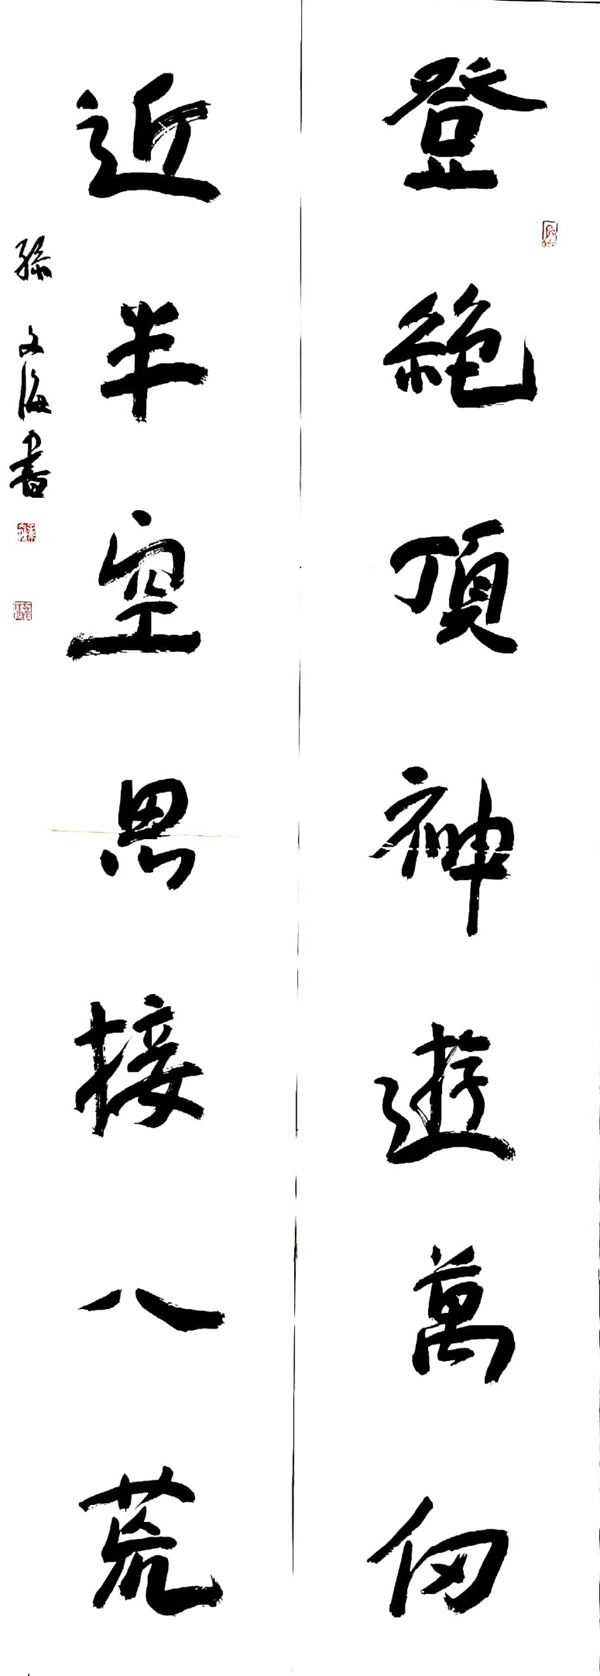 登絕頂神遊萬仞
近半空思接八荒
孫文海書